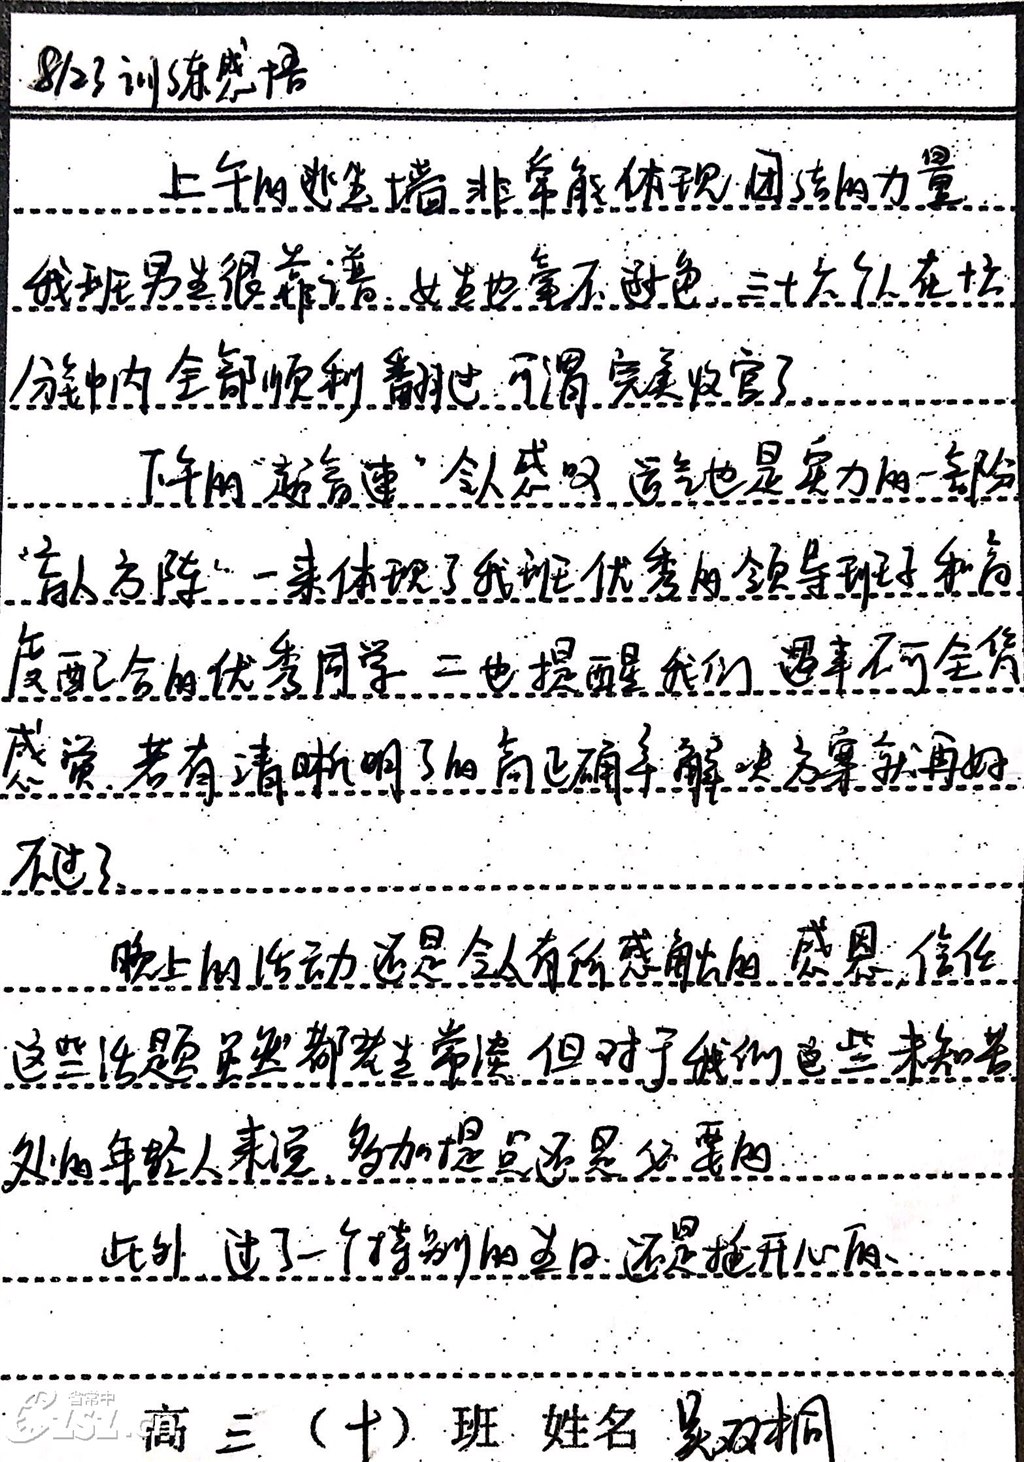 8/23训练感悟
上午的逃生墙非常能体现团结的力量
我班男生很靠谱、女生也毫不逊色、三十六个人在十六
分钟内全部顺利翻过、可谓完美收官了
下午的“超音速”令人感叹 运气也是实力的一部份
“盲人方阵”一来体现了我班优秀的领导班子和高
度配合的优秀同学 二也提醒我们 遇事不可全凭
感觉、若有清晰明了的高正确率解决方案就再好
不过了、
晚上的活动还是令人有所感触的 感恩、信任
这些话题虽然都老生常谈 但对于我们这些未知苦
处的年轻人来说、多加提点还是必要的
此外 过了一个特别的生日 还是挺开心的、
高三(十)班 姓名 吴双桐
省常中